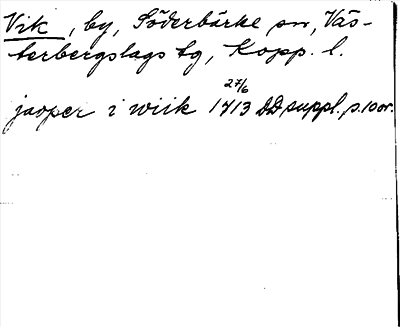 Vik, by, Söderbärke sn, Väs-
terbergslags tg, Kopp. l.
27/6
jaoper i wiik 1413 DD suppl. s. 100r.